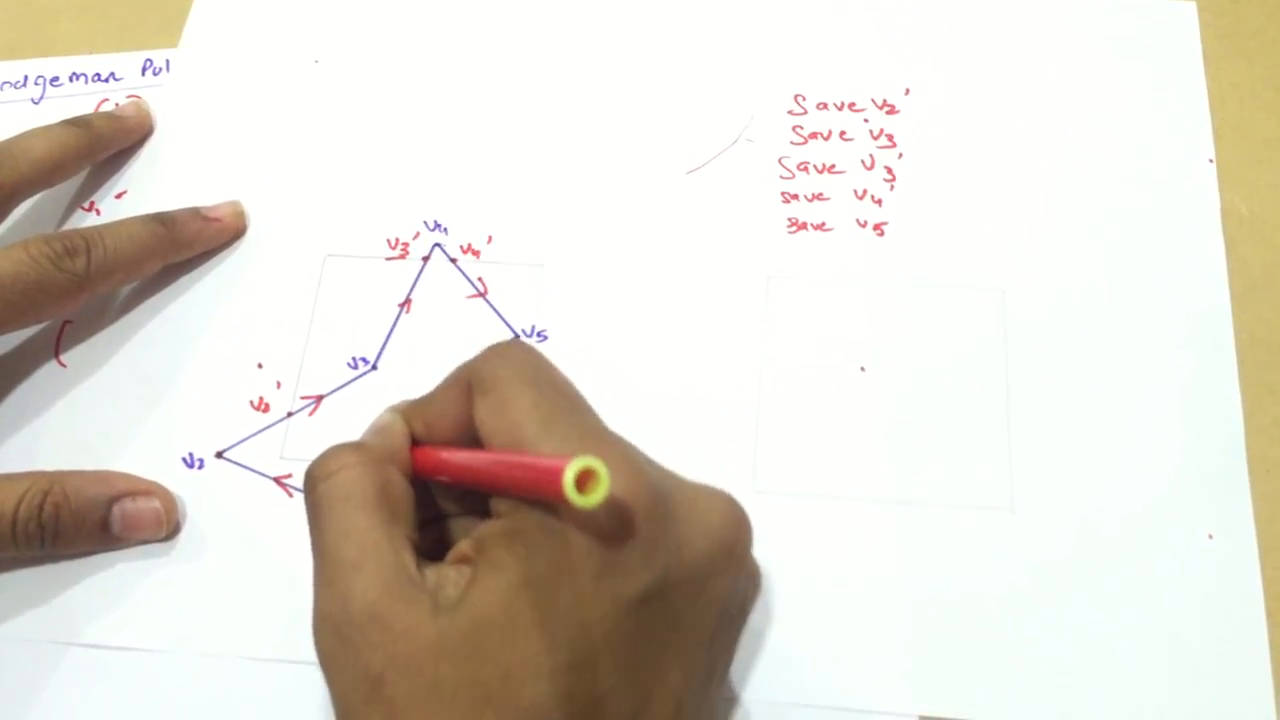 odgeman Pol
v1'
(
Save v2'
Save v3
Save v3'
save v4'
save v5
v4
v3' v4'
v5
v3
v2'
v2